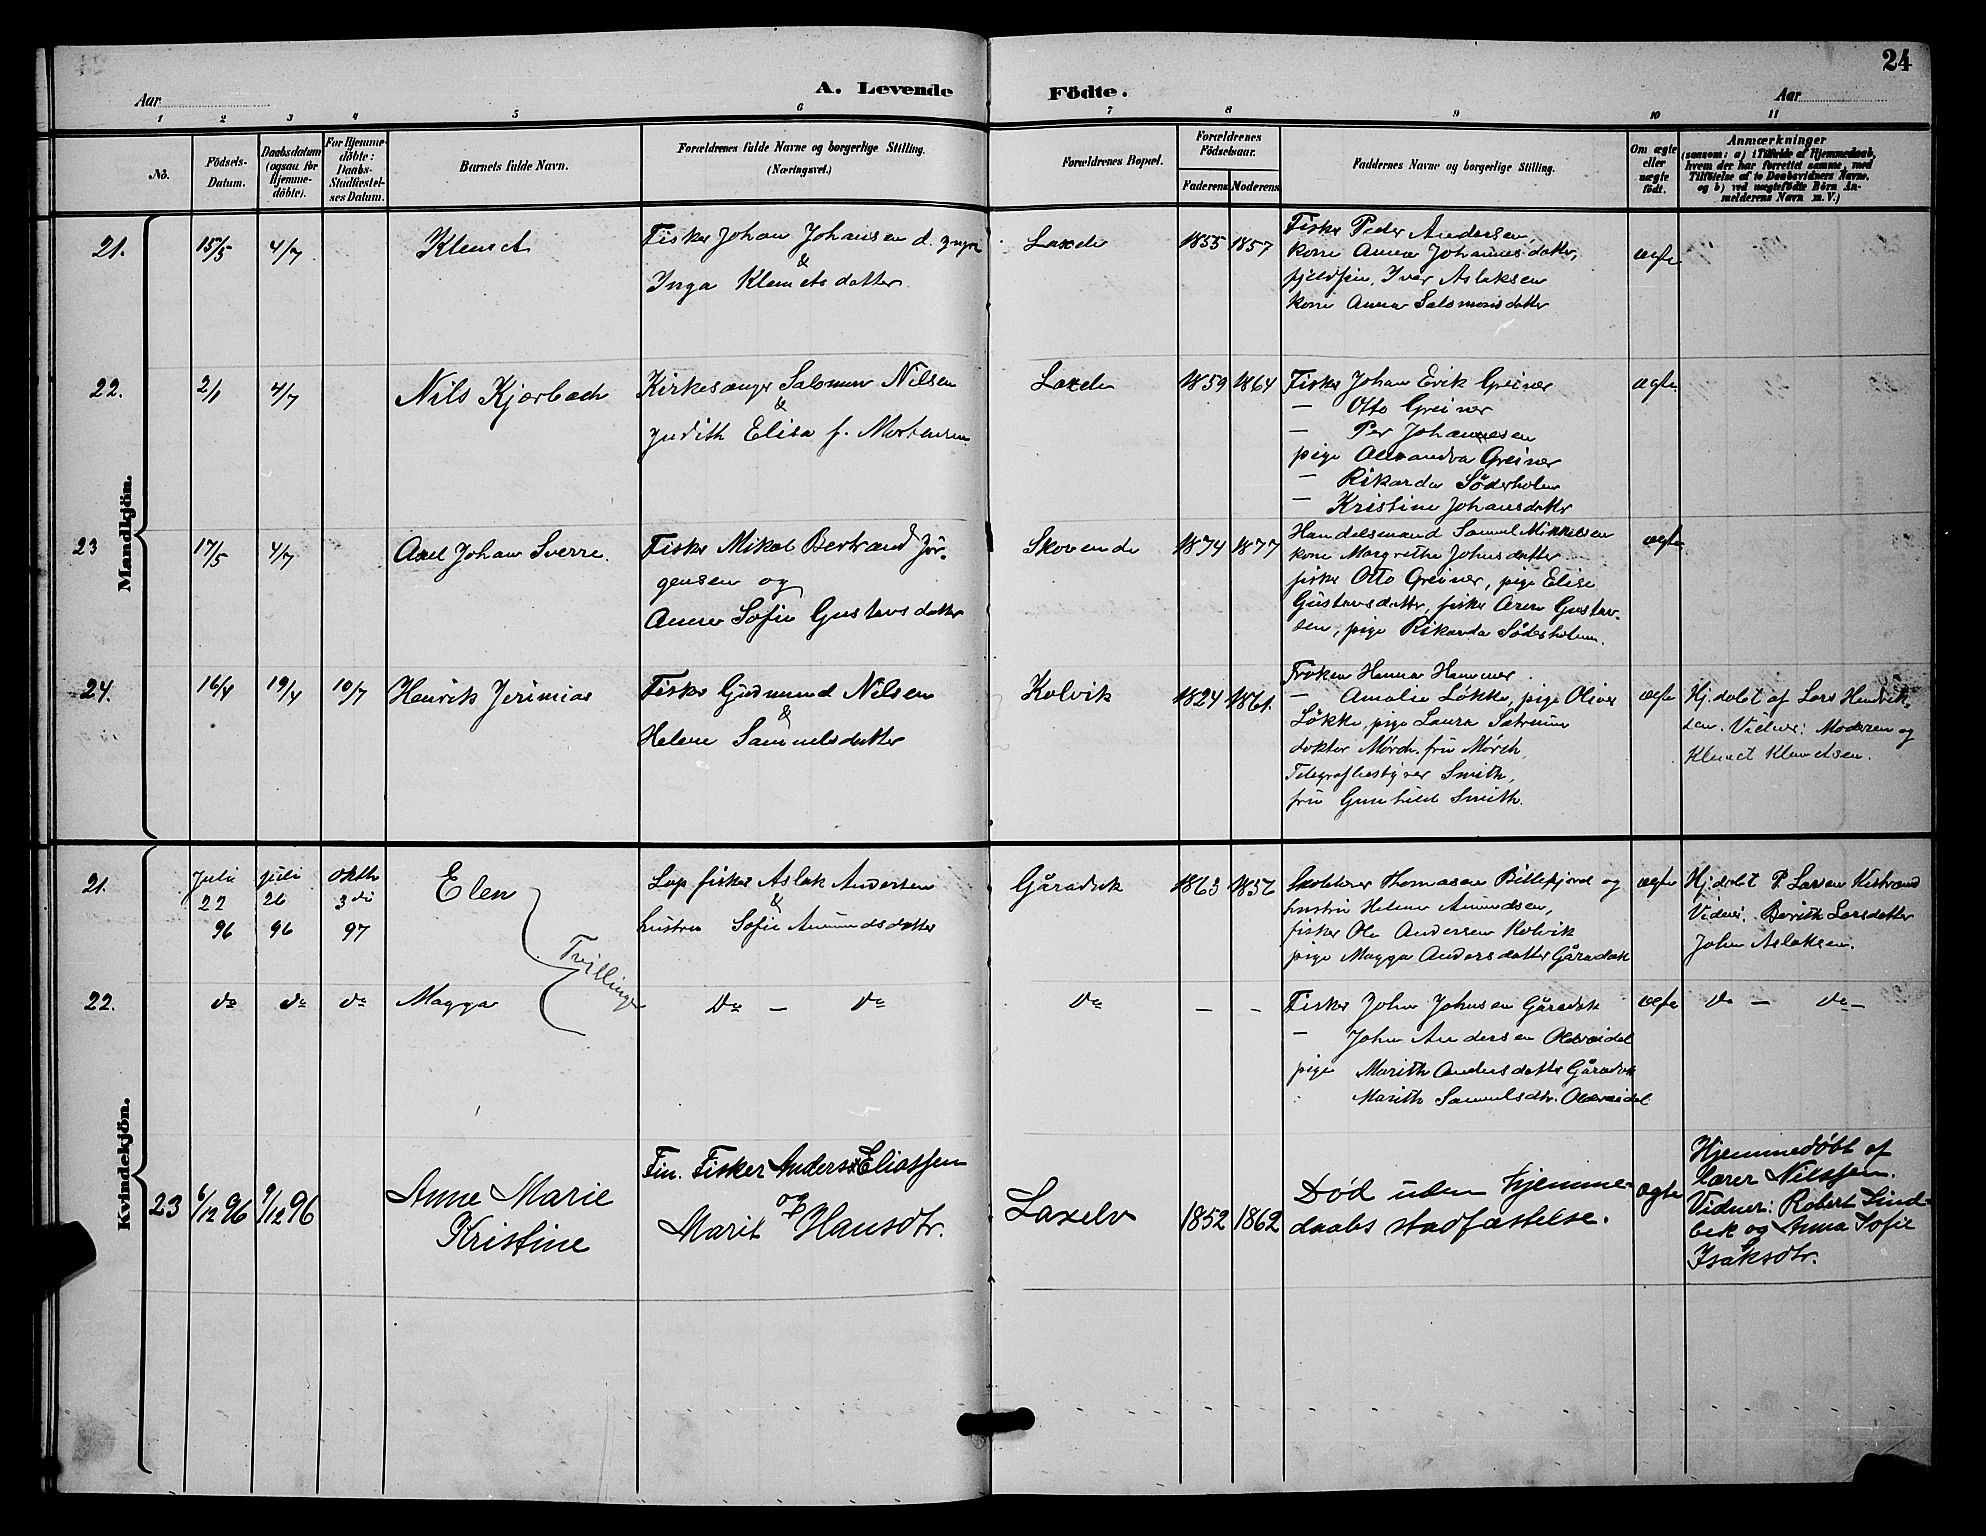 24
Aar
A. Levende Födte.
Aar
1 2 3 4 5 6 7 8 9 10 11
No.
Födsels-
Datum.
Daabsdatum
(ogsaa for
Hjemme-
döbte).
For Hjemme-
döbte:
Daabs-
Stadfæstel-
ses Datum.
Barnets fulde Navn.
Forældrenes fulde Navne og borgerlige Stilling.
(Næringsvei.)
Forældrenes Bopæl.
Forældrenes
Födselsaar.
Faderens Moderens
Faddernes Navne og borgerlige Stilling.
Om ægte
eller
uægte
födt.
Anmærkninger
(saasom: a) i Tilfælde af Hjemmedaab,
hvem der har forrettet samme, med
Tilföielse af to Daabsvidners Navne,
og b) ved uægtefödte Börn An-
melderens Navn m. V.)
Mandkjön.
21. 15/5 4/7 Klemet
Fisker Johan Johansen d. yngre
&
Inga Klemetsdatter
Laxelv 1855 1857
Fisker Peder Andersen,
kone Anna Johannesdatter,
fjeldfin Iver Aslaksen
kone Anna Salomonsdatter
ægte
22. 2/1 4/7 Nils Kjærbech
Kirkesanger Salomon Nilsen
&
Judith Elisa f. Mortensen
Laxelv 1859 1864
Fisker Johan Erik Greiner
— Otto Greiner
— Per Johannesen
pige Alexandra Greiner
— Rikarda Söderholm
— Kristine Johansdatter
ægte
23 17/5 4/7 Axel Johan Sverre.
Fisker Mikal Bertrand Jör-
gensen og
Anna Sofie Gustavsdatter
Skovende 1874 1877
Handelsmand Samuel Mikkelsen
kone Margrethe Johnsdatter
fisker Otto Greiner, pige Elise
Gustavsdatter, fisker Aron Gustav-
sen, pige Rikarda Söderholm.
ægte
24. 16/4 19/4 10/7 Henrik Jerimias
Fisker Gudmund Nilsen
&
Helene Samuelsdatter
Kolvik 1824 1861.
Fröken Hanna Hammer
— Amalie Løkke, pige Oliver
Løkke, pige Laura Sætrum
doktor Mörch, fru Mörch
Telegrafbestyrer Smith,
fru Gunhild Smith.
ægte
Hj. døbt af Lars Hendrik-
sen. Vidner: Moderen og
Klemet Klemetsen.
Kvindekjön.
21. Juli
22
96
juli
26
96
oktbr
3die
97
Elen
Tvillinger
Lap fisker Aslak Andersen
&
hustru Sofie Amundsdatter
Gåradak 1863 1856
Skolelærer Thomasen Billefjord og
hustru Helene Amundsen,
fisker Ole Andersen Kolvik
pige Magga Andersdatter Gåradak
ægte
Hj. døbt P. Larsen Kistrand
Vidner: Berith Larsdatter
John Aslaksen.
22. do do do Magga
do — do
do — —
Fisker John Johnsen Gåradak
— John Andersen Oldereidet
pige Marith Andersdatter Gåradak
Marith Samuelsdtr. Oldereidet
ægte do — do —
23 6/12 96 9/12 96
Anne Marie
Kristine
Fin. Fisker Anders Eliassen
og
Marit Hansdtr.
Laxelv 1852 1862
Død uden hjemme-
daabs stadfæstelse.
ægte
Hjemmedøbt af
Lærer Nilssen.
Vidner: Robert Lind-
bek og Anna Sofie
Isaksdtr.